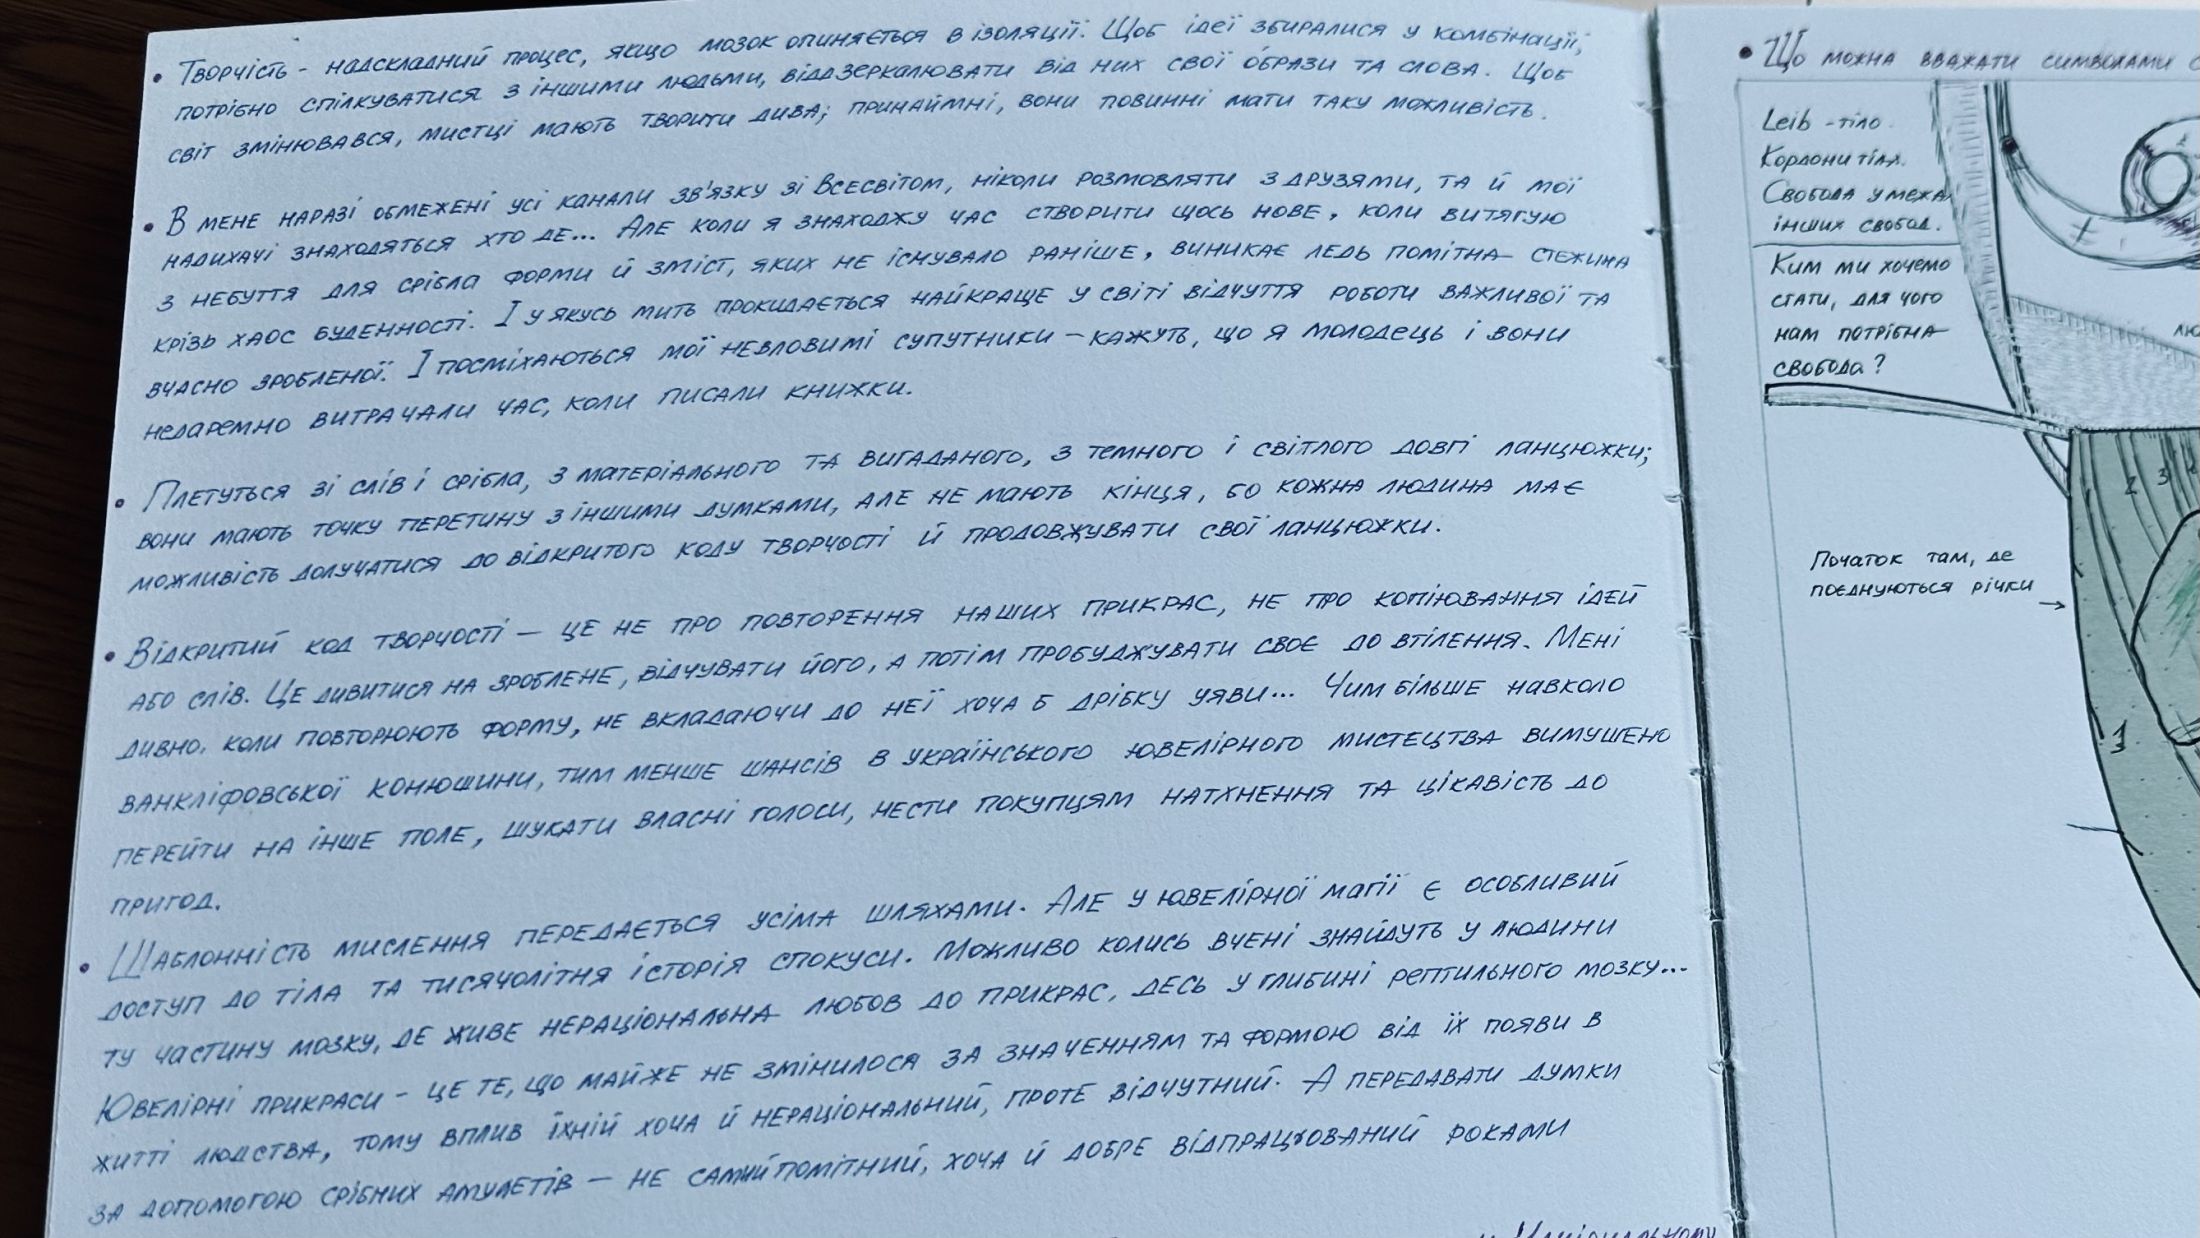 • Творчість - надскладний процес, якщо мозок опиняється в ізоляції. Щоб ідеї збиралися у комбінації,
потрібно спілкуватися з іншими людьми, віддзеркалювати від них свої образи та слова. Щоб
світ змінювався, мистці мають творити дива; принаймні, вони повинні мати таку можливість.
• В мене наразі обмежені усі канали зв'язку зі Всесвітом, ніколи розмовляти з друзями, та й мої
надихачі знаходяться хто де... Але коли я знаходжу час створити щось нове, коли витягую
з небуття для срібла форми й зміст, яких не існувало раніше, виникає ледь помітна стежина
крізь хаос буденності. І у якусь мить прокидається найкраще у світі відчуття роботи важливої та
вчасно зробленої. І посміхаються мої невловимі супутники – кажуть, що я молодець і вони
недаремно витрачали час, коли писали книжки.
• Плетуться зі слів і срібла, з матеріального та вигаданого, з темного і світлого довгі ланцюжки;
вони мають точку перетину з іншими думками, але не мають кінця, бо кожна людина має
можливість долучатися до відкритого коду творчості й продовжувати свої ланцюжки.
• Відкритий код творчості – це не про повторення наших прикрас, не про копіювання ідей
або слів. Це дивитися на зроблене, відчувати його, а потім пробуджувати своє до втілення. Мені
дивно, коли повторюють форму, не вкладаючи до неї хоча б дрібку уяви... Чим більше навколо
ванкліфовської конюшини, тим менше шансів в українського ювелірного мистецтва вимушено
перейти на інше поле, шукати власні голоси, нести покупцям натхнення та цікавість до
пригод.
• Шаблонність мислення передається усіма шляхами. Але у ювелірної магії є особливий
доступ до тіла та тисячолітня історія спокуси. Можливо колись вчені знайдуть у людини
ту частину мозку, де живе нераціональна любов до прикрас, десь у глибині рептильного мозку...
Ювелірні прикраси - це те, що майже не змінилося за значенням та формою від їх появи в
житті людства, тому вплив їхній хоча й нераціональний, проте відчутний. А передавати думки
за допомогою срібних амулетів – не самий помітний, хоча й добре відпрацьований роками
• Що можна вважати символами
Leib - тіло.
Кордони тіла.
Свобода у межах
інших свобод.
Ким ми хочемо
стати, для чого
нам потрібна
свобода?
2 3
Початок там, де
поєднуються річки
1